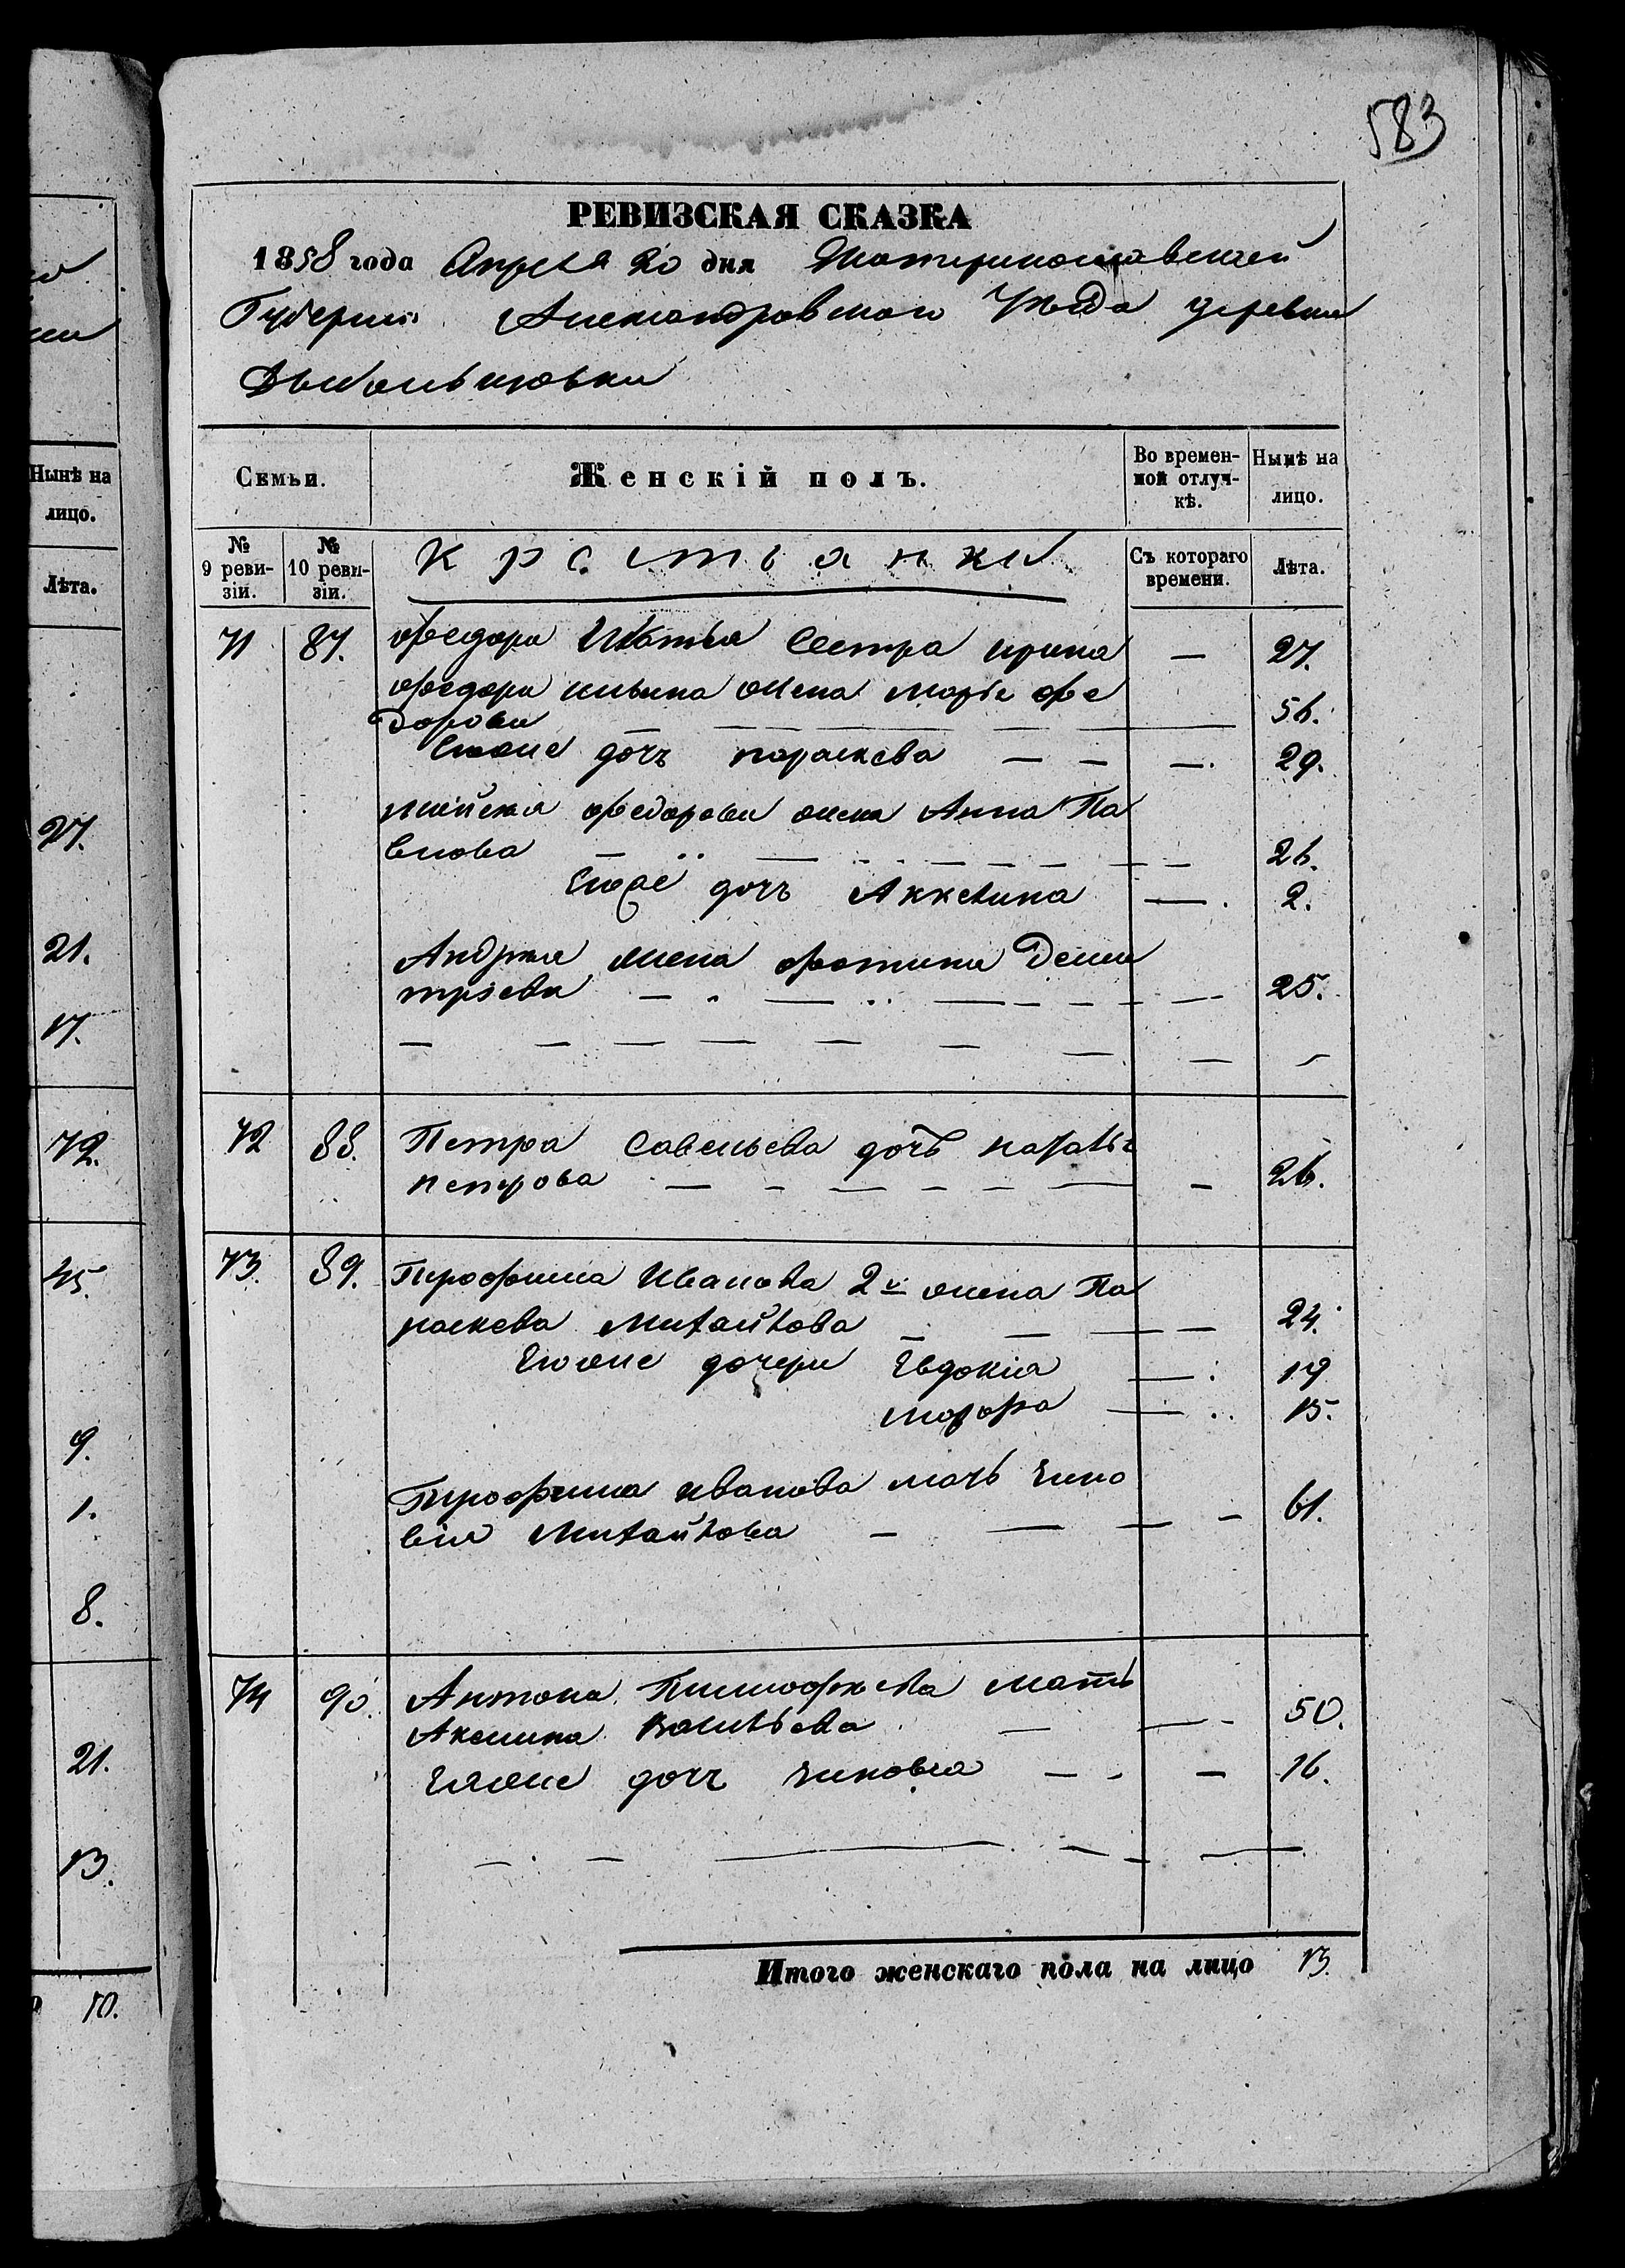 583
РЕВИЗСКАЯ СКАЗКА
1858 года Апреля 20 дня Екатеринославской
Губернии Александровского Уезда деревни
Нынѣ на
лицо.
Лѣта.
Семьи.
Женскій полъ.
Во времен-
ной отлуч-
кѣ.
Нынѣ на
лицо.
№
9 реви-
зіи.
№
10 реви-
зіи.
Крестьянки
Съ котораго
времени.
Лѣта.
71 87. Федора Сестра ирина — 27.
Федора ильина жена марья Фе
дорова — 56.
Егоже дочь параскева — 29.
Федорова жена Анна Па
влова — 26.
Егоже дочь Аккелина — 2.
Андрея жена фотина Дими
тріева — 25.
72 88. Петра Савельева дочь наталья
петрова — 26.
73. 89. Трофима Иванова 2й жена Па
раскева Михайлова — 24.
Егоже дочери Евдокіа — 19
марфа — 15.
Трофима иванова мать Зино
віа Михайлова — 61.
74 90. Антона Тимофеева мать
Акелина Васильева — 50.
Еяже дочь зиновеа — 16.
Итого женскаго пола на лицо 13.
27.
21.
17.
72.
45.
9.
1.
8.
21.
13.
10.